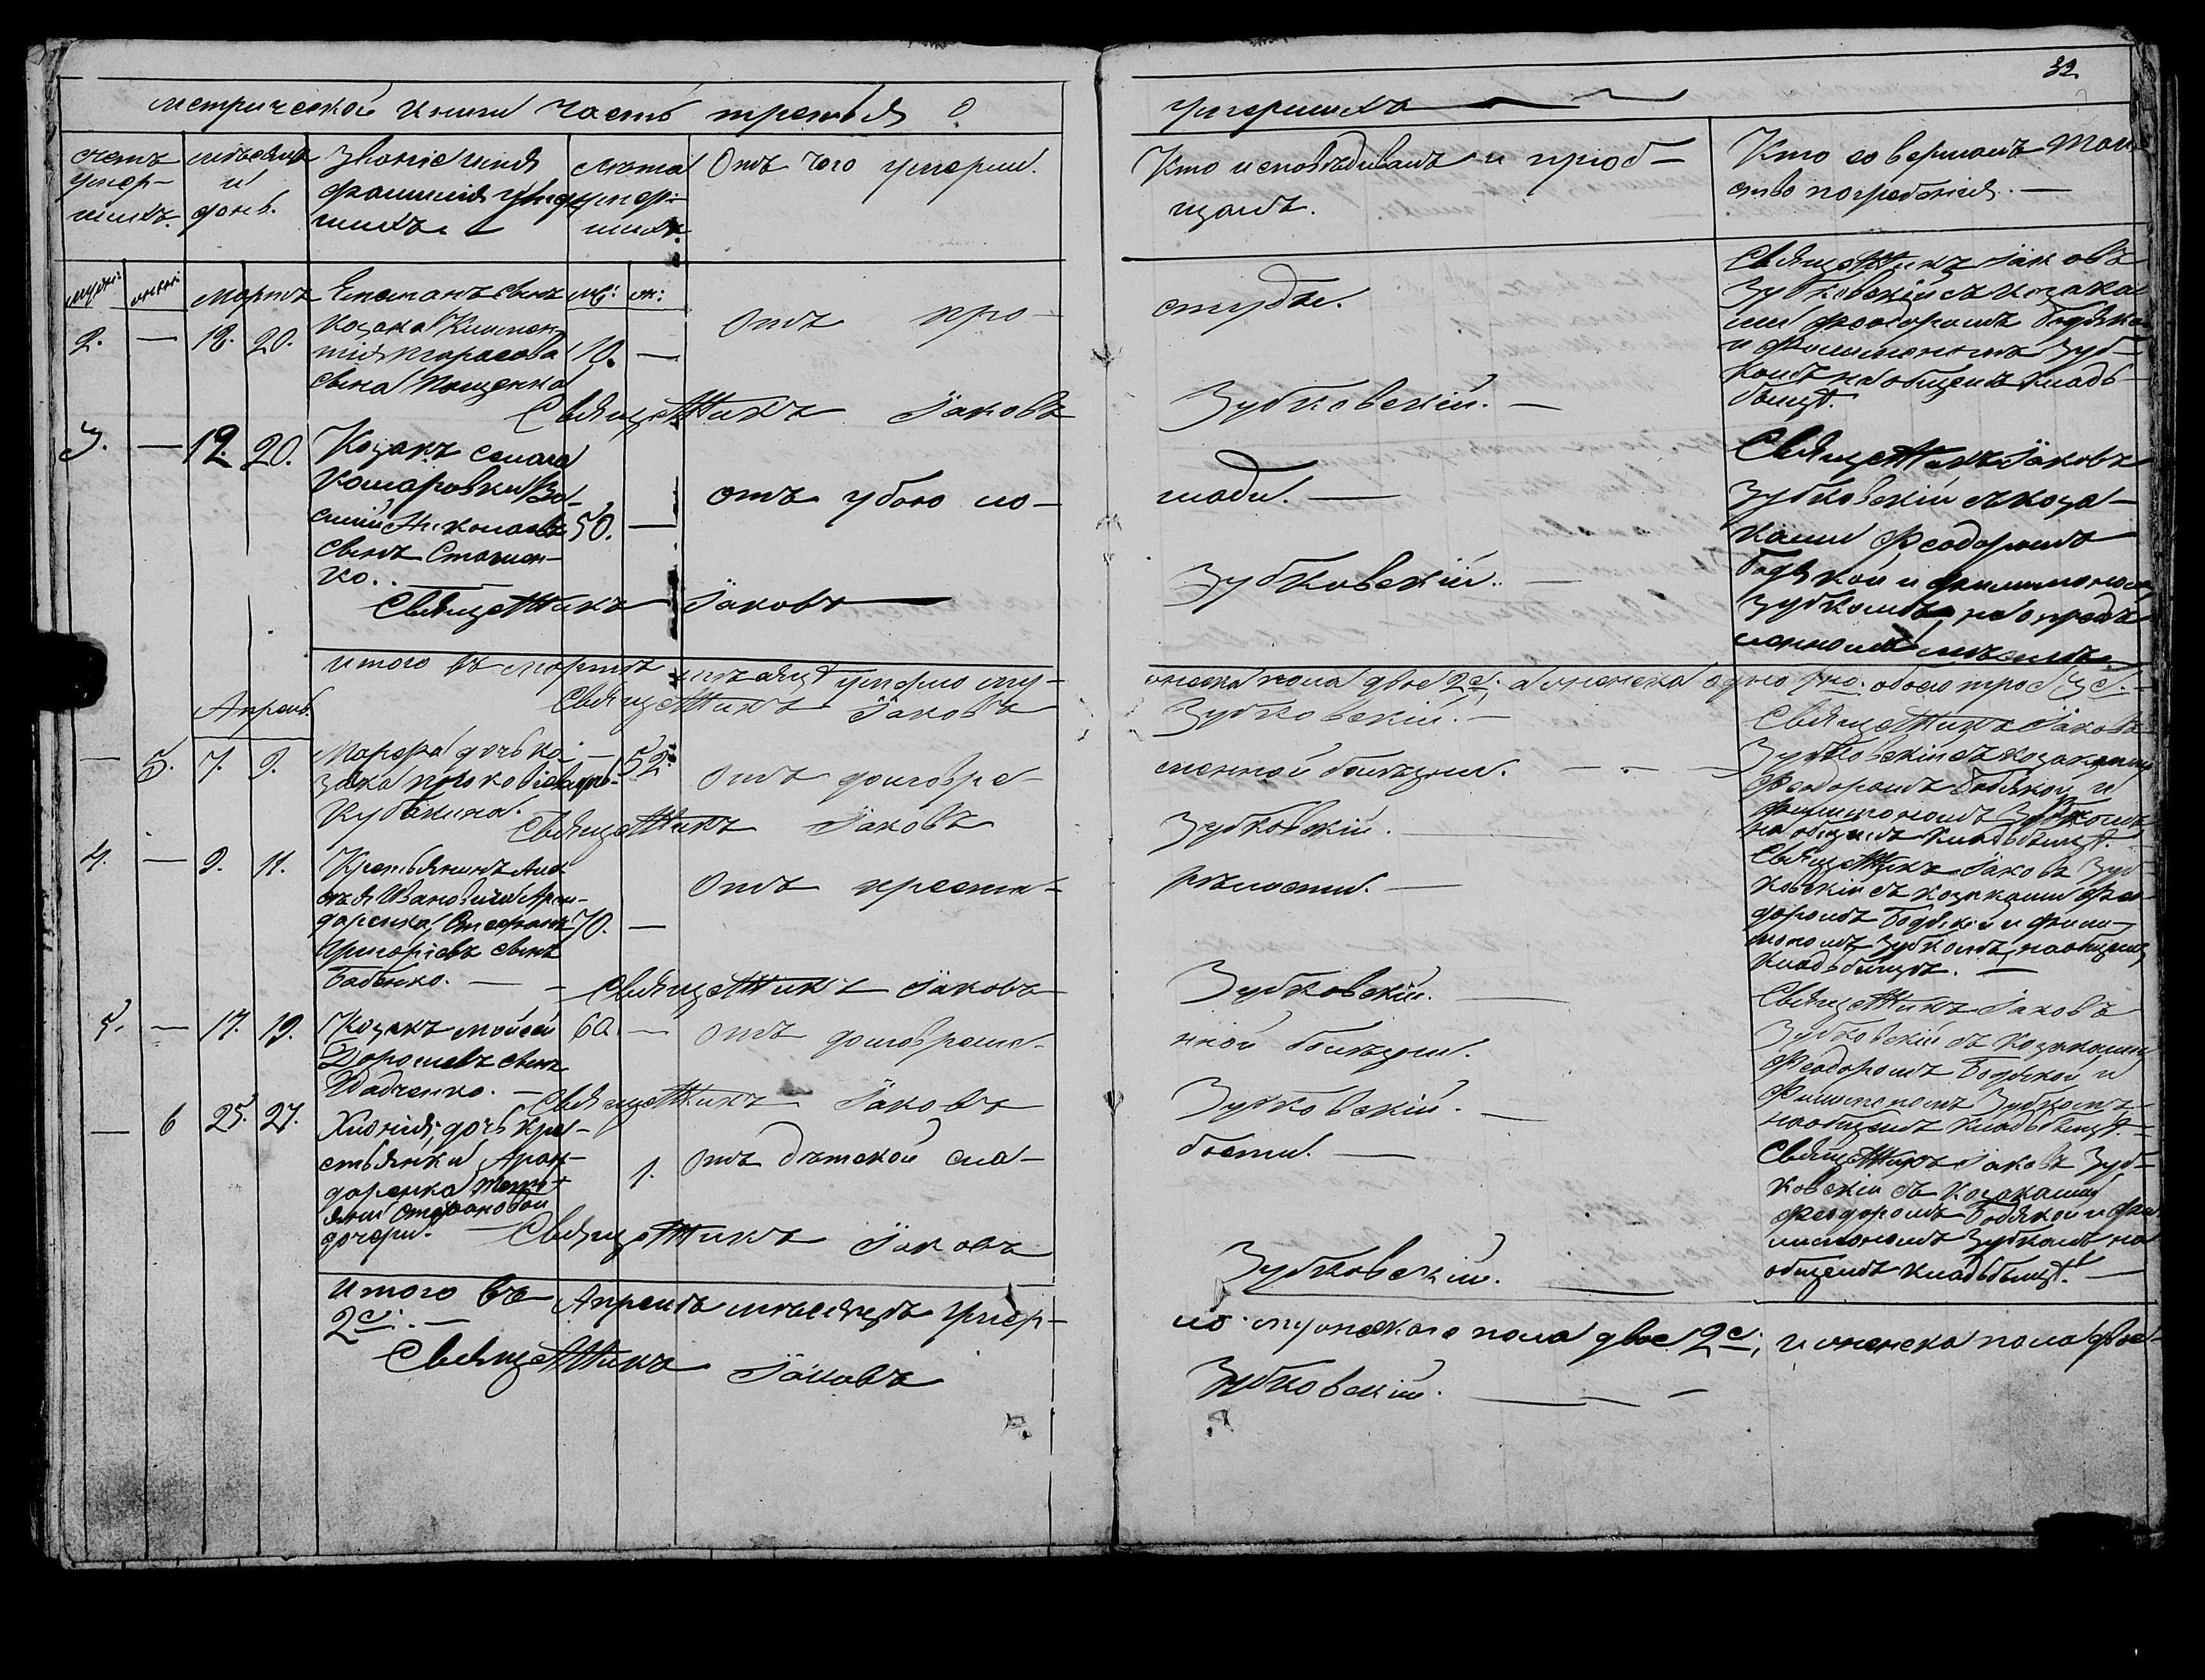 32.
метрической книги часть третья о
умершихъ
счетъ умер-
шихъ.
мѣсяцъ
и
день.
Званіе имя
фамилія умер
шихъ.
Лѣта
умер-
шихъ.
Отъ чего умерли.
Кто исповѣдывалъ и пріоб-
щалъ.
Кто совершалъ таин
ство погребенія.
муж: женс:
Мартъ
му: ж:
2. — 18. 20.
сынъ
козака
Тарасова
сына
10. —
Отъ про-
студы.
Священникъ Іаковъ
Зубковскій.
Священникъ Іаковъ
Зубковскій съ козака
ми Феодоромъ
и Филимономъ Зуб-
комъ на общемъ кладь-
бищѣ.
3. — 19. 20.
Козакъ села
Комаровки Ва-
силій Николаевъ
сынъ
ко.
50. —
отъ убою ло-
шади.
Священникъ Іаковъ
Зубковскій.
Священникъ Іаковъ
Зубковскій съ коза-
ками Феодоромъ
и Филимономъ
Зубкомъ, на опредѣ
ленномъ мѣстѣ.
итого въ мартѣ мѣсяцѣ умерло му-
жеска пола двое 2е; а женска одно 1но. обоего трое 3е.
Священникъ Іаковъ
Зубковскій.
Апрель.
— 5. 7. 9.
дочь ко-
зака
— 52.
Отъ долговре-
менной болѣзни.
Священникъ Іаковъ
Зубковскій.
Священникъ Іаковъ
Зубковскій съ козаками
Феодоромъ и
Филимономъ Зубкомъ
на общемъ кладьбищѣ.
4. — 9. 11.
Крестьянинъ
Ивановича Аран-
даренка, Стефанъ
Григоріевъ сынъ
Бабенко.
70. —
Отъ преста-
рѣлости.
Священникъ Іаковъ
Зубковскій.
Священникъ Іаковъ Зуб-
ковскій съ козаками Фео-
доромъ и Фили-
мономъ Зубкомъ, на общемъ
кладьбищѣ.
5. — 17. 19.
Козакъ Мойсей
сынъ
60. —
Отъ долговреме-
нной болѣзни.
Священникъ Іаковъ
Зубковскій.
Священникъ Іаковъ
Зубковскій съ козаками
Феодоромъ и
Филимономъ Зубкомъ
на общемъ кладьбищѣ.
— 6 25. 27.
Хіонія, дочь кре-
стьянки Аран-
даренка
Стефановой
дочери.
1.
Отъ дѣтской сла-
бости.
Священникъ Іаковъ
Зубковскій.
Священникъ Іаковъ Зуб-
ковскій съ козаками
Феодоромъ и Фи-
лимономъ Зубкомъ на
общемъ кладьбищѣ.
итого въ Апрелѣ мѣсяцѣ умер-
ло мужескаго пола двое 2е; и женска пола двое
2е.
Священникъ Іаковъ
Зубковскій.